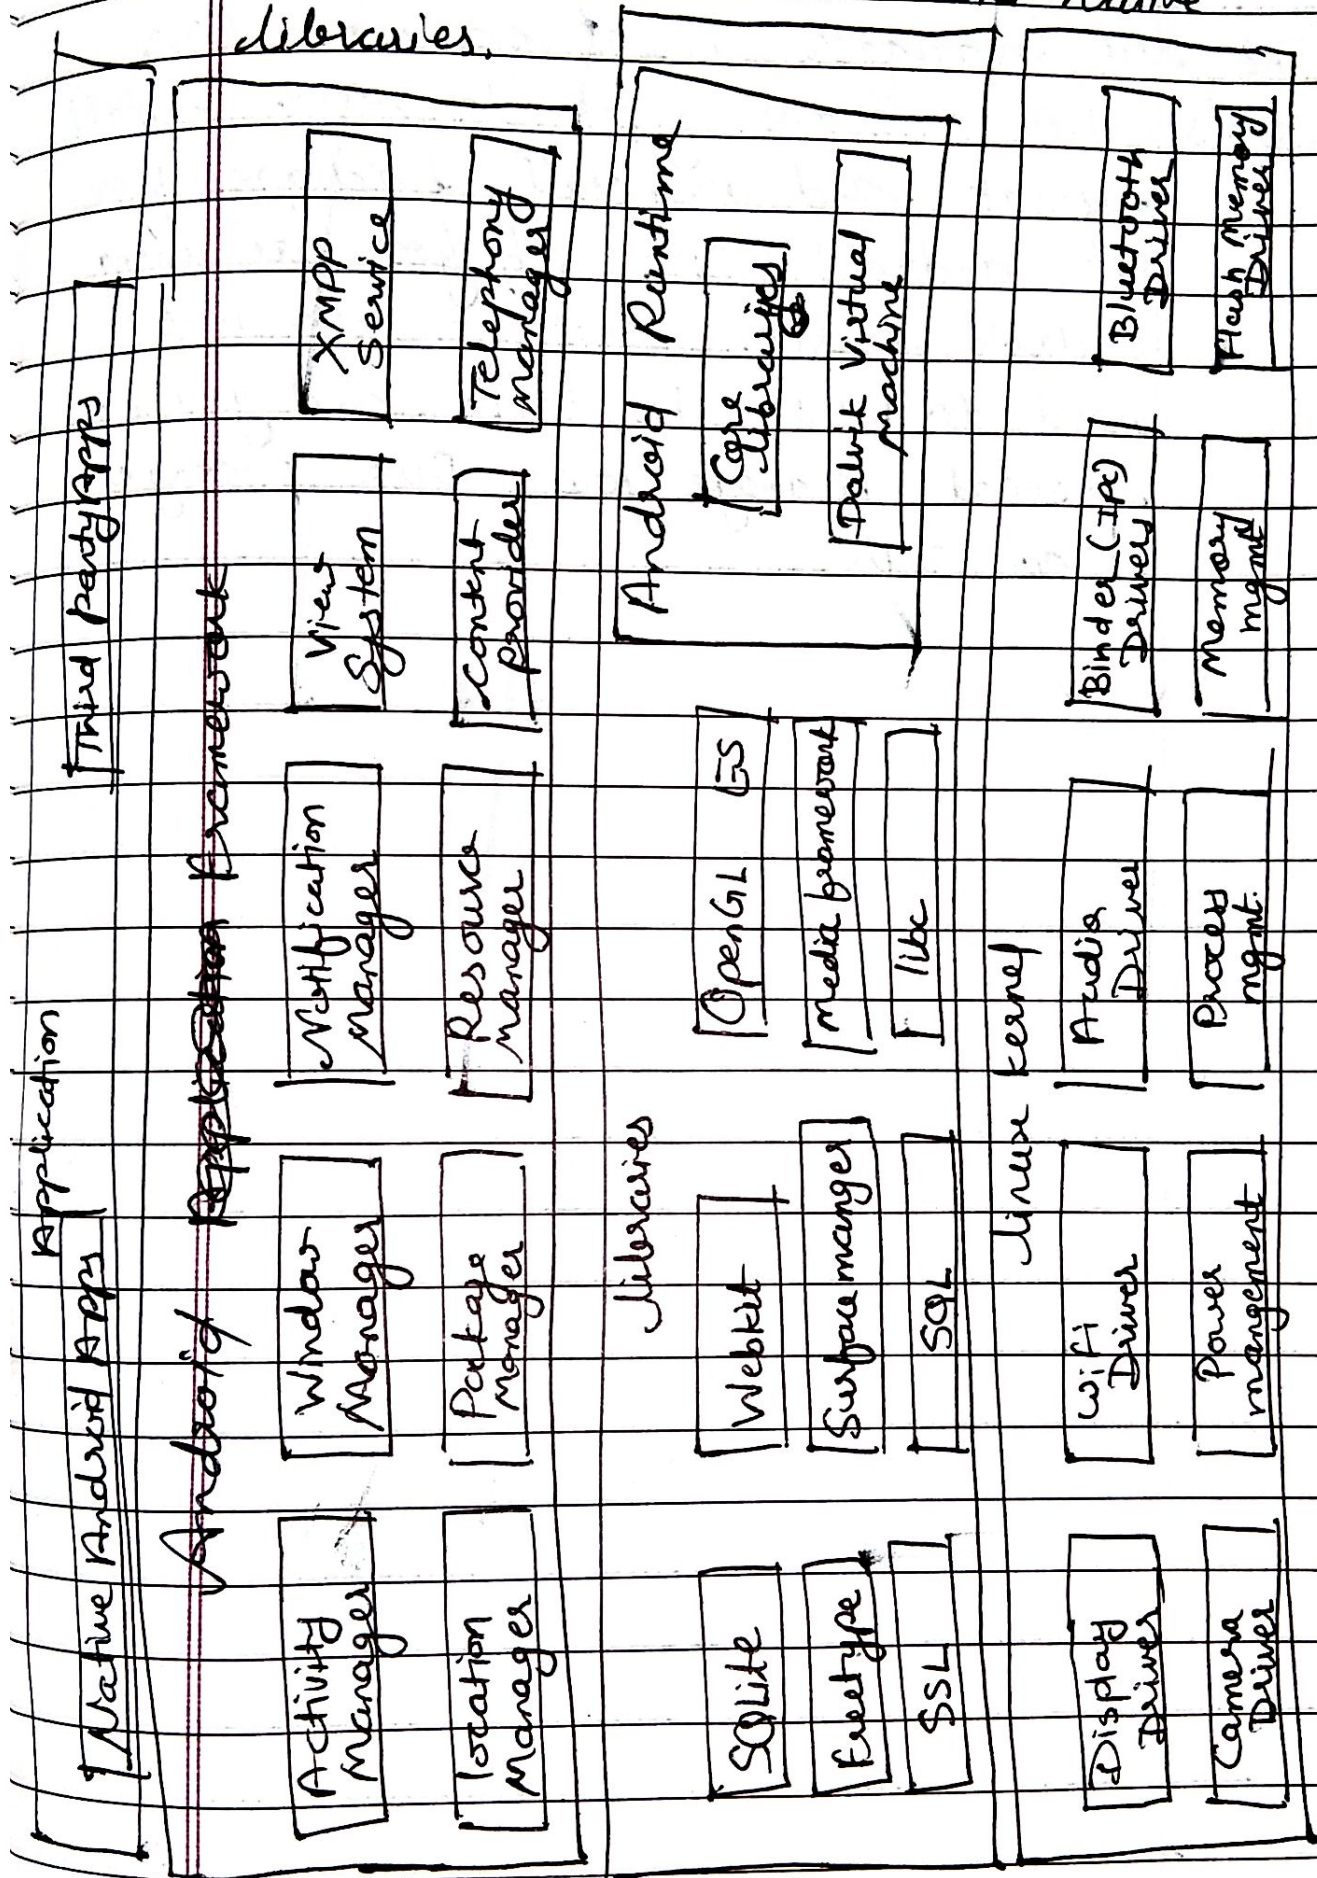 Native
libraries.
Application
Native Android Apps
Third party Apps
Android Framework
Activity
Manager
Window
Manager
Notification
Manager
View
System
XMPP
Service
location
Manager
Package
Manager
Resource
Manager
Content
Provider
Telephony
Manager
libraries
SQLite
Webkit
OpenGL ES
Freetype
Surface manger
Media framework
SSL
SQL
libc
Android Runtime
Core
libraries
Dalvik Virtual
Machine
linux kernel
Display
Driver
Wifi
Driver
Audio
Driver
Binder (IPC)
Drivers
Bluetooth
Driver
Camera
Driver
Power
mangement
Process
mgmt.
Memory
mgmt
Flash Memory
Driver